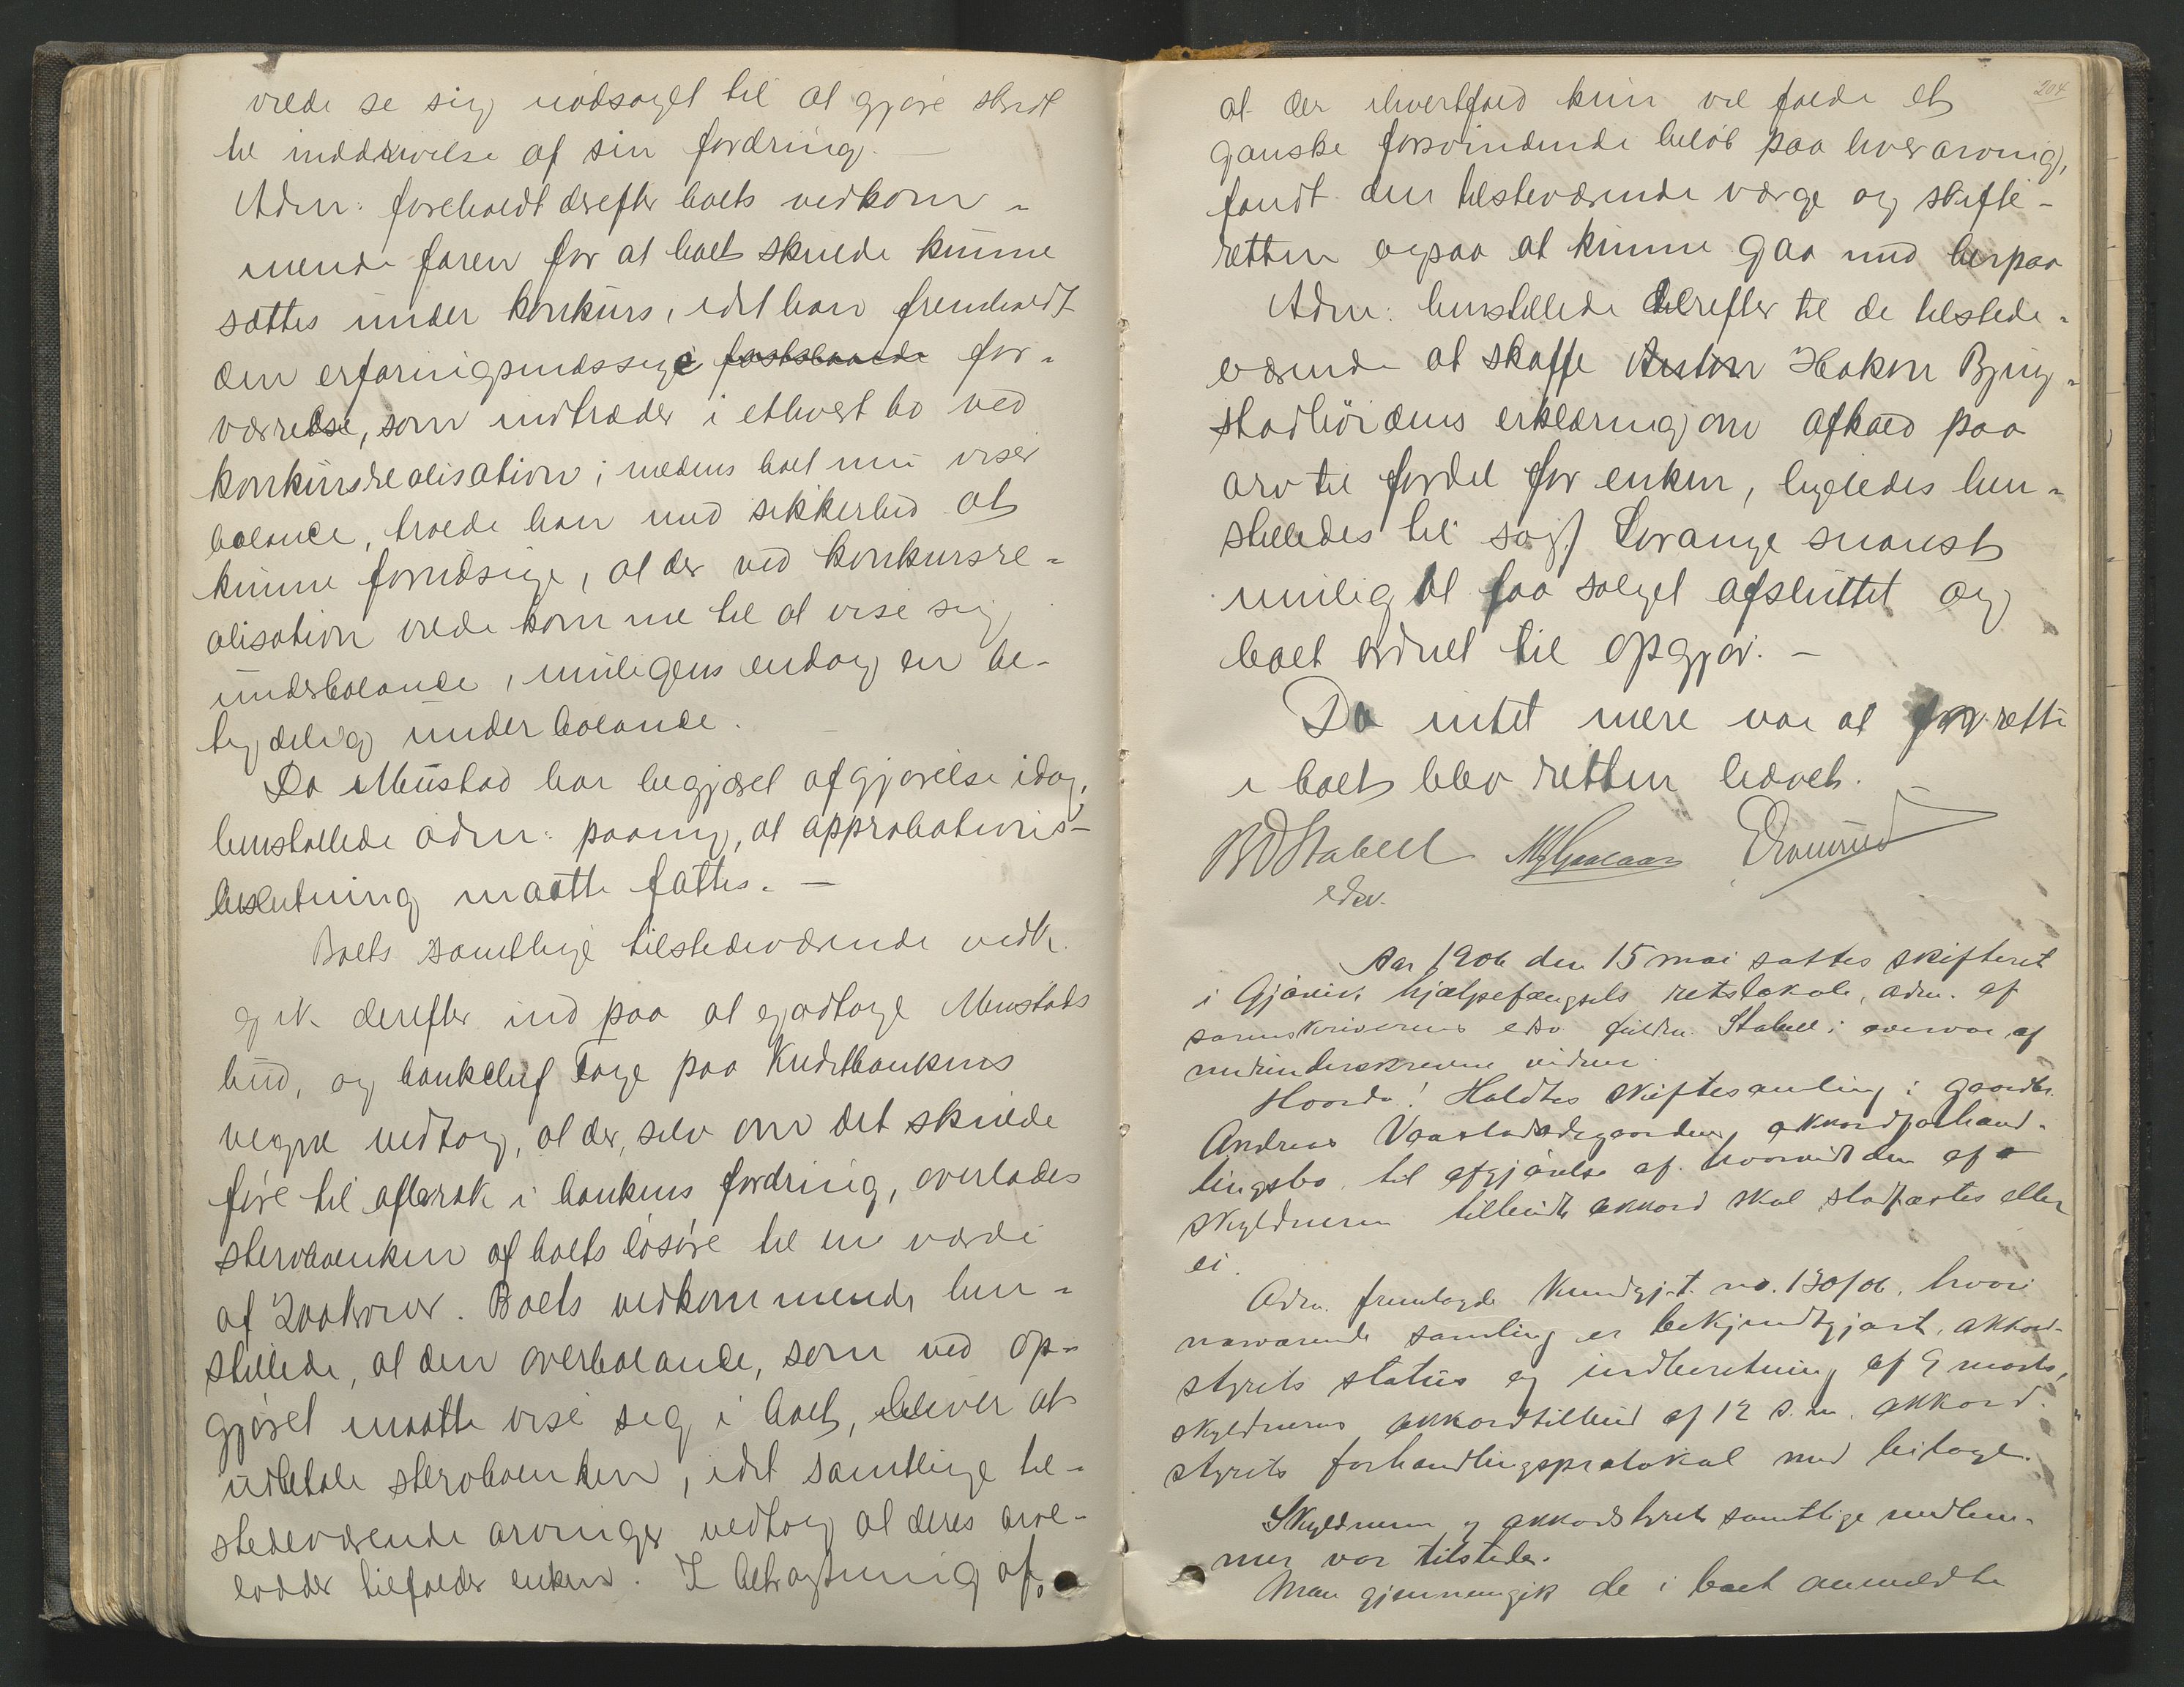 vilde se sig nødsaget til at gjøre skridt
til inddrivelse af sin fordring. —
Adm: foreholdt derefter boets vedkom-
mende faren for at boet skulde kunne
sættes under konkurs, idet han fremholdt
den erfaringsmæssige fastslaaede for-
værrelse, som indtræder i ethvert bo ved
konkursrealisation; medens boet nu viser
balance, troede han med sikkerhed at
kunne forudsige, at der ved konkursre-
alisation vilde komme til at vise sig
underbalance, muligens endog en be-
tydelig underbalance.
Da Mustad har begjæret afgjørelse idag,
henstillede adm: paany, at approbations-
beslutning maatte fattes. —
Boets samtlige tilstedeværende vedk.
gik derefter ind paa at godtage Mustads
bud, og bankchef Tage paa Kreditbankens
vegne vedtog, at der, selv om det skulde
føre til afbræk i bankens fordring, overlades
stervboenken af boets løsøre til en værdi
af 200 kroner. Boets vedkommende hen-
stillede, at den overbalance, som ved op-
gjøret maatte vise sig i boet, bliver at
udbetale stervboenken, idet samtlige til-
stedeværende arvinger vedtog at deres arve-
lodder tilfalder enken. I betragtning af,
204
at der ihvertfald kun vil falde et
ganske forsvindende beløb paa hver arving,
fandt den tilsteværende værge og skifte-
retten ogsaa at kunne gaa ind herpaa
Adm: henstillede derefter til de tilstede-
værende at skaffe Anton Hakon Bjug-
stadhøidens erklæring om afkald paa
arv til fordel for enken, ligeledes hen-
stilledes til sagf. Lorange snarest
mulig at faa salget afsluttet og
boet ordnet til opgjør. —
Da intet mere var at forrette
i boet blev retten hævet.
BDStabell
edsv.
Aar 1906 den 15 mai sattes skifteret
i Gjøvik hjælpefængsels retslokale, adm. af
sorenskriverens edsv. fuldm. Stabell i overvær af
medunderskrevne vidner.
Hvorda! Holdtes skiftesamling i gaardbr.
Andreas Vaarstadødegaardens akkordforhand-
lingsbo til afgjørelse af hvorvidt den af
skyldneren tilbudte akkord skal stadfæstes eller
ei.
Adm. fremlagde Kundgj.t. no. 130/06, hvori
nærværende samling er bekjendtgjort, akkord-
styrets status og indberetning af 9 marts,
skyldnerens akkordtilbud af 12 s.m. akkord-
styrets forhandlingsprotokol med bilage.
Skyldneren og akkordstyrets samtlige medlem-
mer var tilstede.
Man gjennemgik de i boet anmeldte